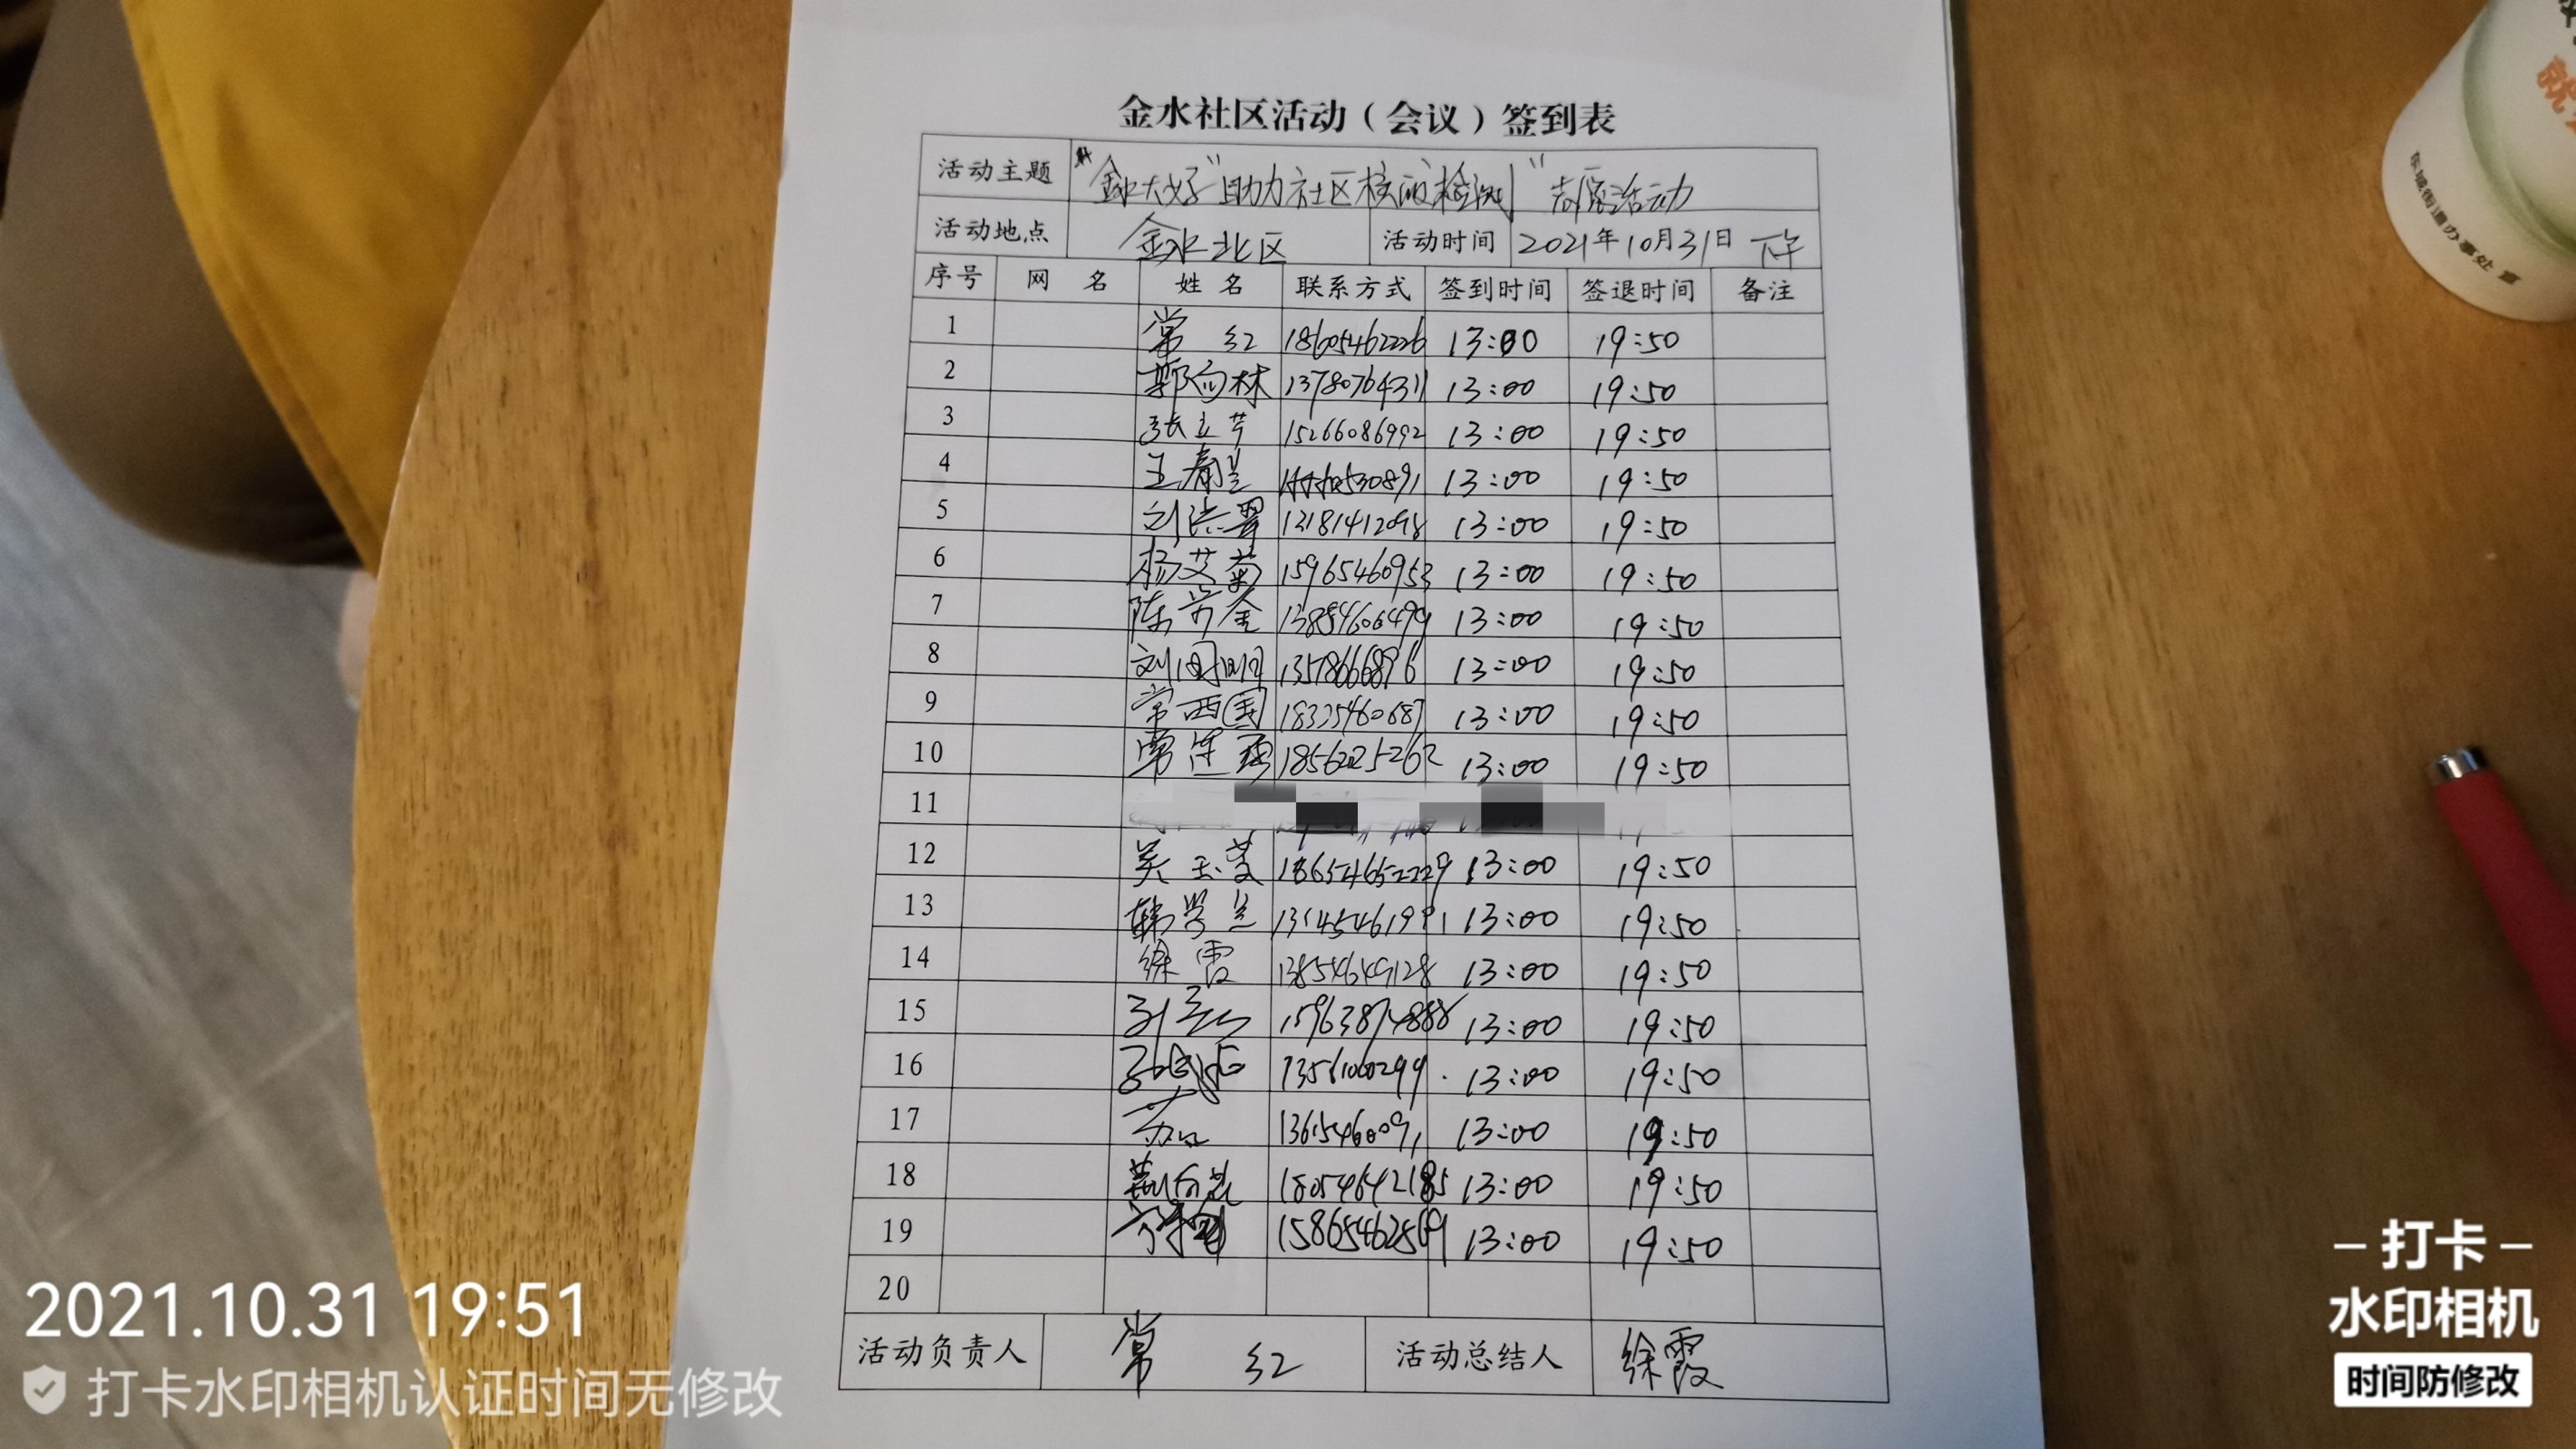 金水社区活动（会议）签到表
活动主题 "金水大好"助力社区核酸检测"志愿活动
活动地点 金水北区 活动时间 2021年10月31日 下午
序号 网 名 姓 名 联系方式 签到时间 签退时间 备注
1 常 红 18605462226 13:00 19:50
2 郭向林 13780764311 13:00 19:50
3 张立芹 15266086992 13:00 19:50
4 王春兰 13:00 19:50
5 13181412098 13:00 19:50
6 杨艾菊 15965460953 13:00 19:50
7 陈学金 13884606479 13:00 19:50
8 13:00 19:50
9 常西国 18325460687 13:00 19:50
10 13:00 19:50
11
12 吴玉芝 18654652229 13:00 19:50
13 韩学兰 13:00 19:50
14 徐霞 13854649128 13:00 19:50
15 15963874888 13:00 19:50
16 13:00 19:50
17 13:00 19:50
18 18054642185 13:00 19:50
19 15865462569 13:00 19:50
20
活动负责人 常 红 活动总结人 徐霞
2021.10.31 19:51
打卡水印相机认证时间无修改
打卡
水印相机
时间防修改
东城街道办事处 宣